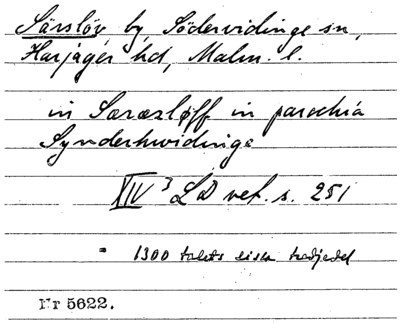 Särslöv by, Södervidinge sn,
Harjager hd, Malm. l.
in Saræsløff in parochia
Synderhwidinge
XIV 3 LD vet. s. 251
= 1300 talets sista tredjedel
Nr 5622.